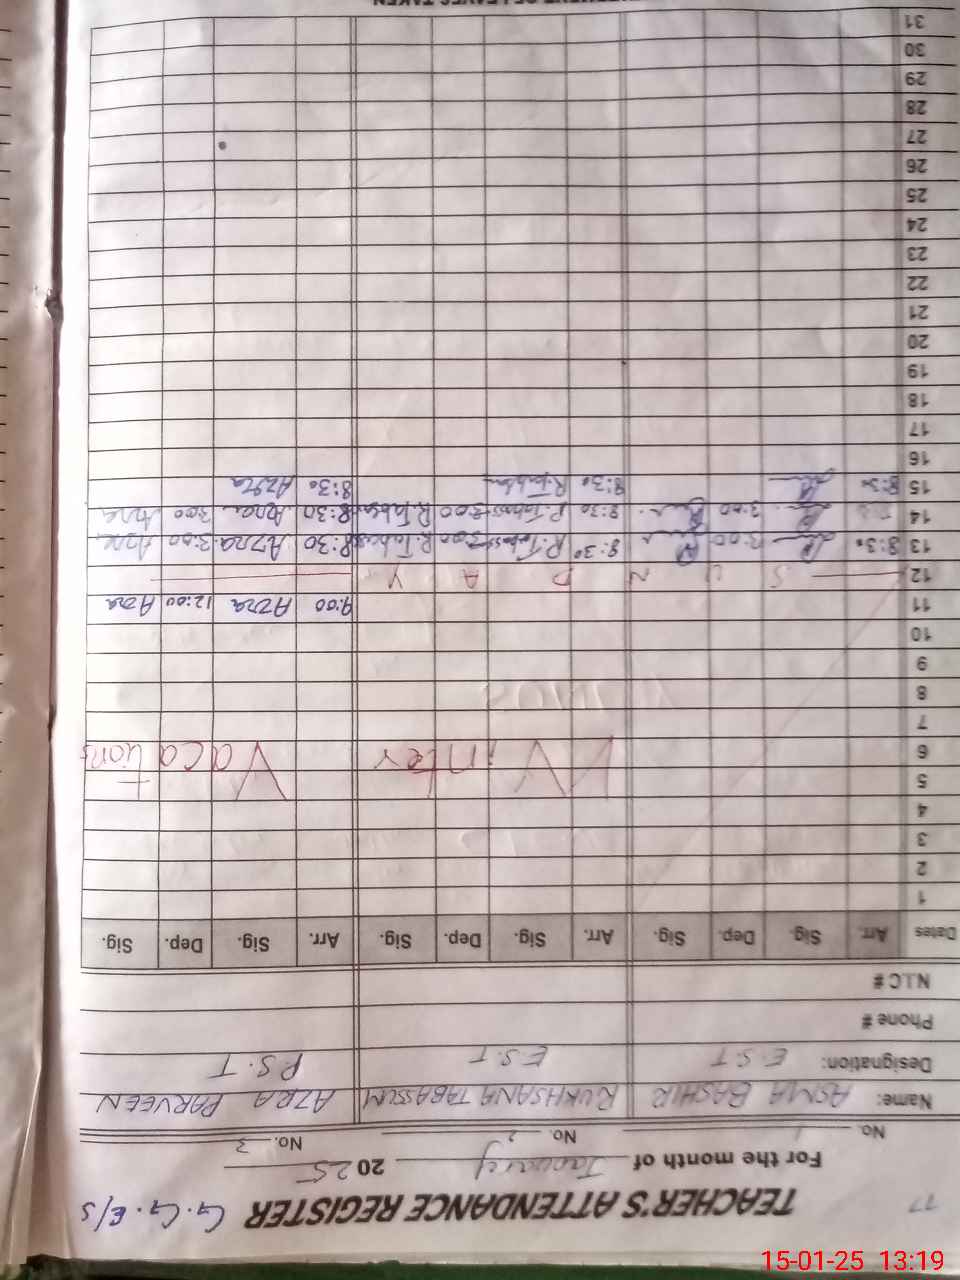 77 TEACHER'S ATTENDANCE REGISTER G.G.E/S
For the month of January 2025
No. 1 No. 2 No. 3
Name: ASMA BASHIR RUKHSANA TABASSUM AZRA PARVEEN
Designation: E.S.T E.S.T P.S.T
Phone #
N.I.C #
Dates Arr. Sig. Dep. Sig. Arr. Sig. Dep. Sig. Arr. Sig. Dep. Sig.
1
2
3
4
5
6 Winter Vacations
7
8
9
10
11 9:00 Azra 12:00 Azra
12 S U N D A Y
13 8:30 3:00 8:30 R.Tabas 3:00 R.Tabas 8:30 Azra 2:00 Azra
14 3:00 8:30 R.Tabas 3:00 R.Tabas 8:30 Azra 3:00 Azra
15 8:30 8:30 R.Tabas 8:30 Azra
16
17
18
19
20
21
22
23
24
25
26
27
28
29
30
31
LEAVES TAKEN
15-01-25 13:19